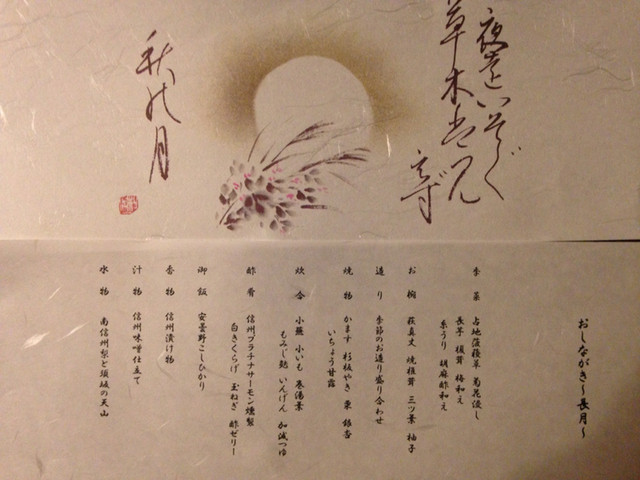 夜空
草木
秋の月
おしながき～長月～
季菜 占地菠薐草 菊花浸し
長芋 椎茸 柿和え
糸うり 胡麻酢和え
お椀 萩真丈 焼椎茸 三ツ葉 柚子
造り 季節のお造り盛り合わせ
焼物 かます 杉板やき 栗 銀杏
いちょう甘露
炊合 小蕪 小いも 巻湯葉
もみじ麩 いんげん 加減つゆ
酢肴 信州プラチナサーモン燻製
白きくらげ 玉ねぎ 酢ゼリー
御飯 安曇野こしひかり
香物 信州漬け物
汁物 信州味噌仕立て
水物 南信州梨と須坂の天山